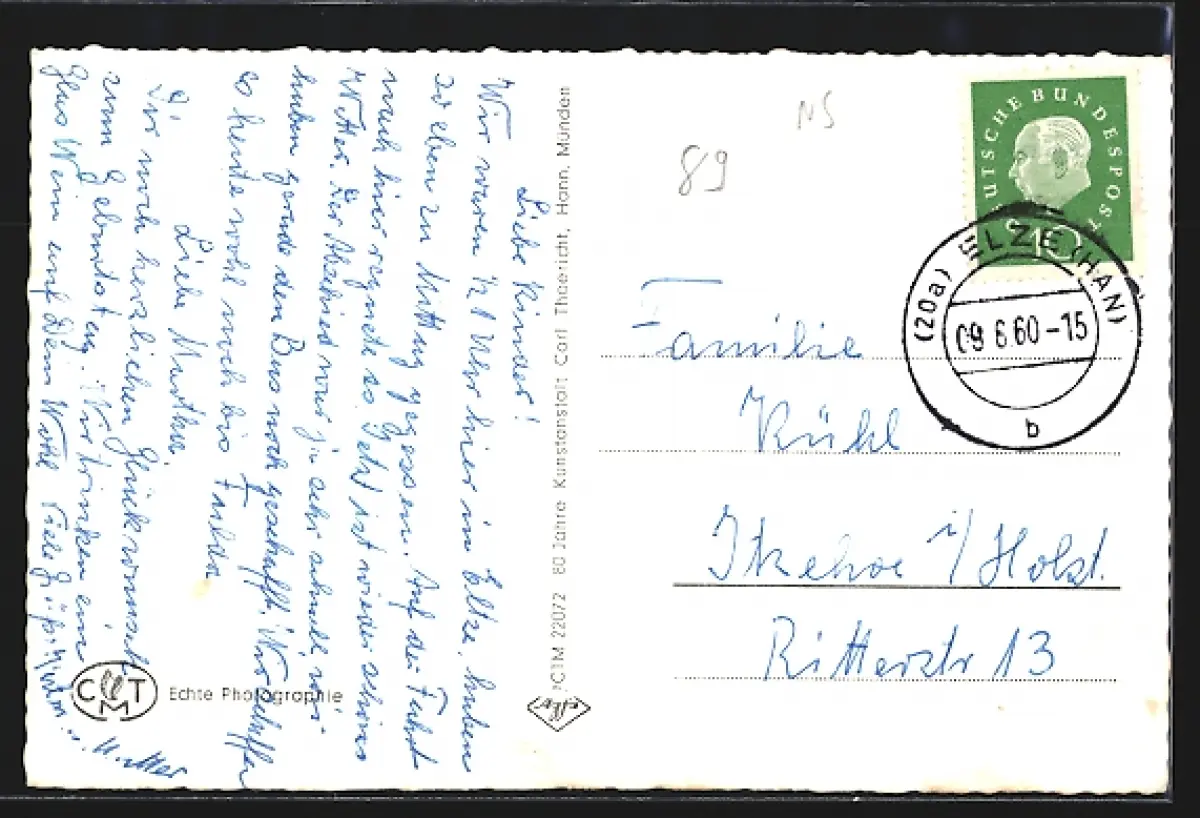 Liebe Kinder!
Wir waren ½1 Uhr hier in Elze, haben
so eben zu Mittag gegessen. Auf der Fahrt
nach hier regnete es. Jetzt ist wieder schönes
Wetter. Der Abschied war ja sehr schnell wir
haben gerade den Bus noch geschafft. Wir schaffen
es heute wohl noch bis Fulda
Liebe Martha
Dir noch herzlichen Glückwunsch
zum Geburtstag. Wir trinken ein
Glas Wein auf Dein Wohl Viele Grüße
Mutter
CMT
Echte Photographie
CTM 22072 80 Jahre Kunstanstalt Carl Thoericht, Hann. Münden
89
NS
DEUTSCHE BUNDESPOST
10
(20a) ELZE (HAN)
09.6.60-15
b
Familie
Kühl
Itzehoe i/Holst.
Ritterstr 13